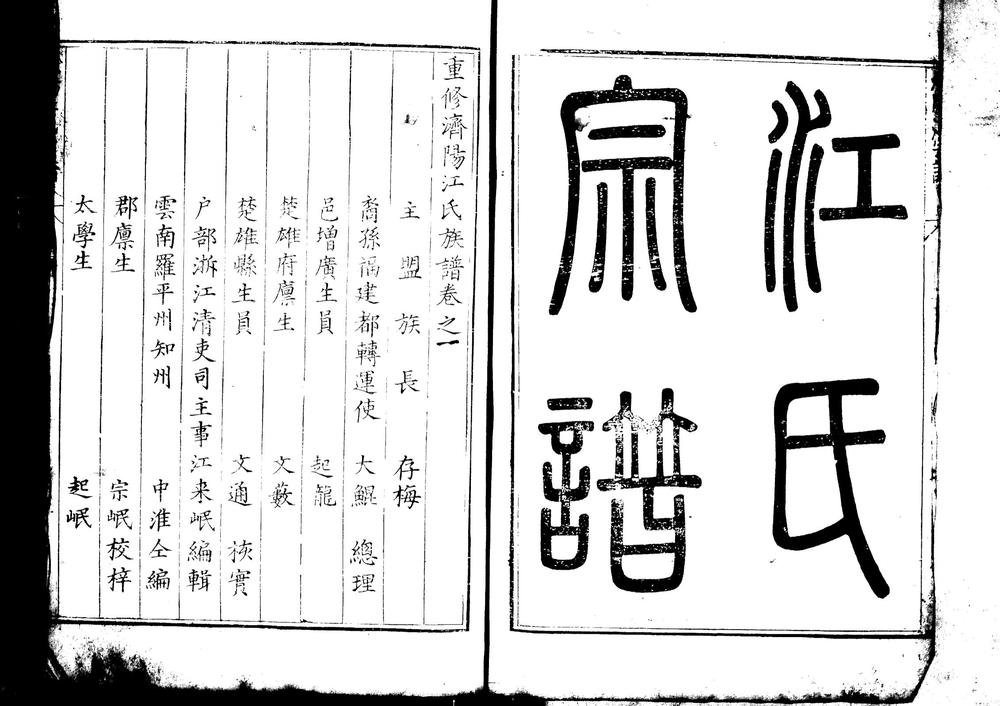 江氏
宗譜
重修濟陽江氏族譜卷之一
主盟族長 存梅
裔孫福建都轉運使 大鯤 總理
邑增廣生員 起龍
楚雄府廪生 文藪
楚雄縣生員 文通 核實
户部浙江清吏司主事江来岷編輯
雲南羅平州知州 申淮仝編
郡廪生 宗岷校梓
太學生 起岷